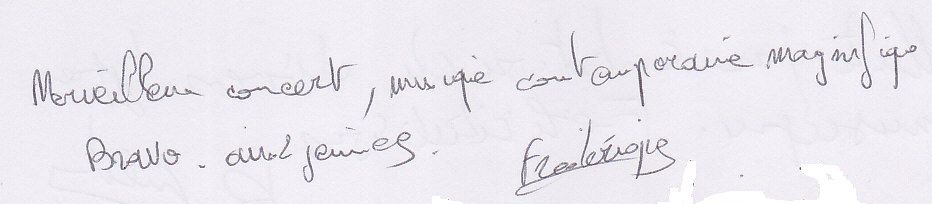 Merveilleux concert, musique contemporaine magnifique
Bravo. aux jeunes. Frédérique